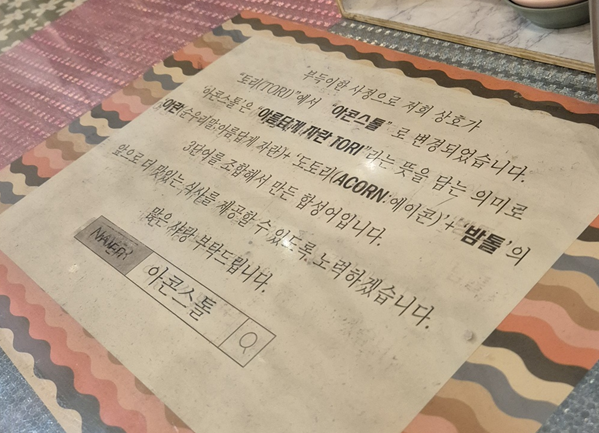 부득이한 사정으로 저희 상호가
"토리(TORI)"에서 "아콘스톨"로 변경되었습니다.
'아콘스톨'은 "아름답게 자란 TORI"라는 뜻을 담는 의미로
'아란(순우리말;아름답게 자란)+'도토리(ACORN:에이콘)'+'밤톨'의
3단어를 조합해서 만든 합성어입니다.
앞으로 더 맛있는 식사를 제공할 수 있도록 노력하겠습니다.
많은 사랑 부탁드립니다.
NAVER
아콘스톨